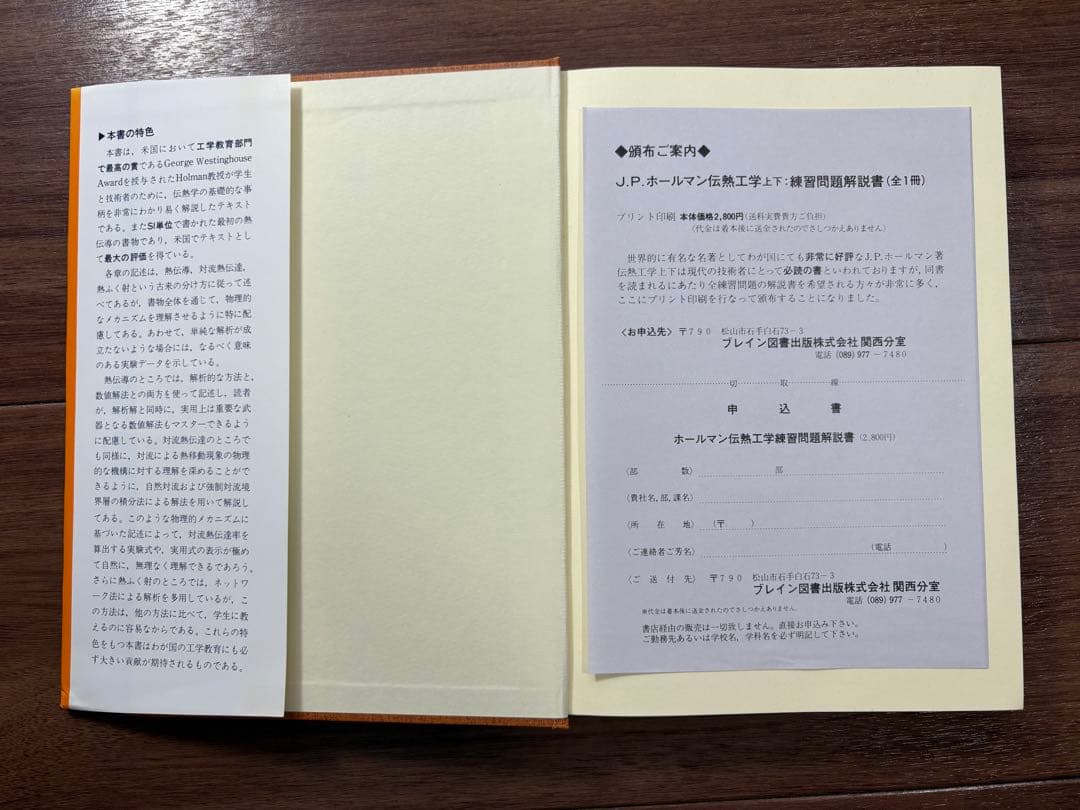 ▶本書の特色
本書は，米国において工学教育部門
で最高の賞であるGeorge Westinghouse
Awardを授与されたHolman教授が学生
と技術者のために，伝熱学の基礎的な事
柄を非常にわかり易く解説したテキスト
である。またSI単位で書かれた最初の熱
伝導の書物であり，米国でテキストとし
て最大の評価を得ている。
各章の記述は，熱伝導，対流熱伝達，
熱ふく射という古来の分け方に従って述
べてあるが，書物全体を通じて，物理的
なメカニズムを理解させるように特に配
慮してある。あわせて，単純な解析が成
立たないような場合には，なるべく意味
のある実験データを示している。
熱伝導のところでは，解析的な方法と，
数値解法との両方を使って記述し，読者
が，解析解と同時に，実用上は重要な武
器となる数値解法もマスターできるよう
に配慮している。対流熱伝達のところで
も同様に，対流による熱移動現象の物理
的な機構に対する理解を深めることがで
きるように，自然対流および強制対流境
界層の積分法による解法を用いて解説し
てある。このような物理的メカニズムに
基づいた記述によって，対流熱伝達率を
算出する実験式や，実用式の表示が極め
て自然に，無理なく理解できるであろう。
さらに熱ふく射のところでは，ネットワ
ーク法による解析を多用しているが，こ
の方法は，他の方法に比べて，学生に教
えるのに容易なからである。これらの特
色をもつ本書はわが国の工学教育にも必
ず大きい貢献が期待されるものである。
◆頒布ご案内◆
J.P.ホールマン伝熱工学上下：練習問題解説書（全1冊）
プリント印刷 本体価格2,800円（送料実費貴方ご負担）
（代金は着本後に送金されたのでさしつかえありません）
世界的に有名な名著としてわが国にても非常に好評なJ.P.ホールマン著
伝熱工学上下は現代の技術者にとって必読の書といわれておりますが，同書
を読まれるにあたり全練習問題の解説書を希望される方々が非常に多く，
ここにプリント印刷を行なって頒布することになりました。
〈お申込先〉 〒790 松山市石手白石73−3
ブレイン図書出版株式会社 関西分室
電話 (089) 977−7480
切取線
申込書
ホールマン伝熱工学練習問題解説書（2,800円）
（部数） 部
（貴社名，部，課名）
（所在地） （〒 ）
（ご連絡者ご芳名） （電話 ）
（ご送付先） 〒790 松山市石手白石73−3
ブレイン図書出版株式会社 関西分室
電話 (089) 977−7480
※代金は着本後に送金されたのでさしつかえありません。
書店経由の販売は一切致しません。直接お申込み下さい。
ご勤務先あるいは学校名，学科名を必ず明記して下さい。